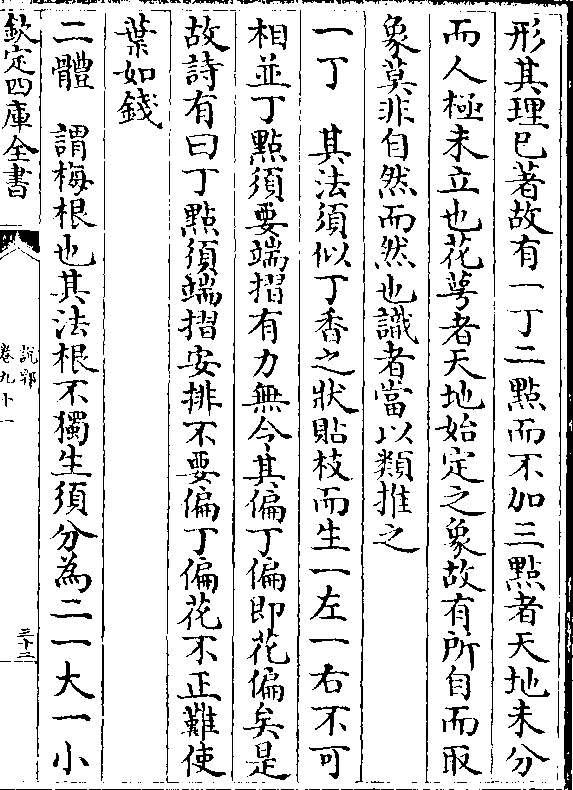 形其理已著故有一丁二點而不加三點者天地未分
而人極未立也花萼者天地始定之象故有所自而取
象莫非自然而然也識者當以類推之
一丁　其法須似丁香之狀貼枝而生一左一右不可
相並丁點須要端摺有力無令其偏丁偏即花偏矣是
故詩有曰丁點須端摺安排不要偏丁偏花不正難使
葉如錢
二體　謂梅根也其法根不獨生須分為二一大一小
欽定四庫全書
說郛
卷九十一
三十二